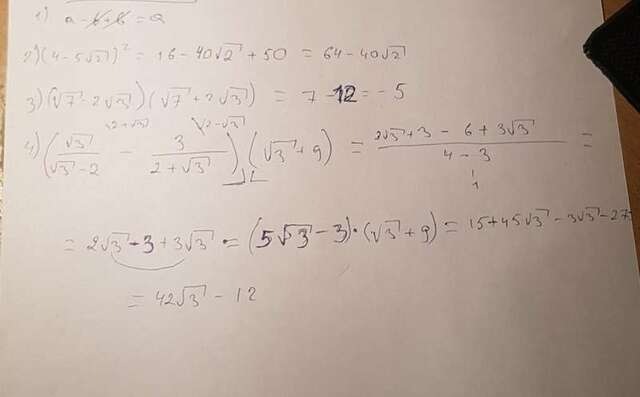 1) a - b + b = a
2) (4 - 5√2)² = 16 - 40√2 + 50 = 64 - 40√2
3) (√7 - 2√3)(√7 + 2√3) = 7 - 12 = -5
\2+√3 \2-√3
4) (√3/(√3 - 2) - 3/(2 + √3))(√3 + 9) = (2√3 + 3 - 6 + 3√3)/(4 - 3) =
1
= 2√3 - 3 + 3√3 = (5√3 - 3)·(√3 + 9) = 15 + 45√3 - 3√3 - 27
= 42√3 - 12